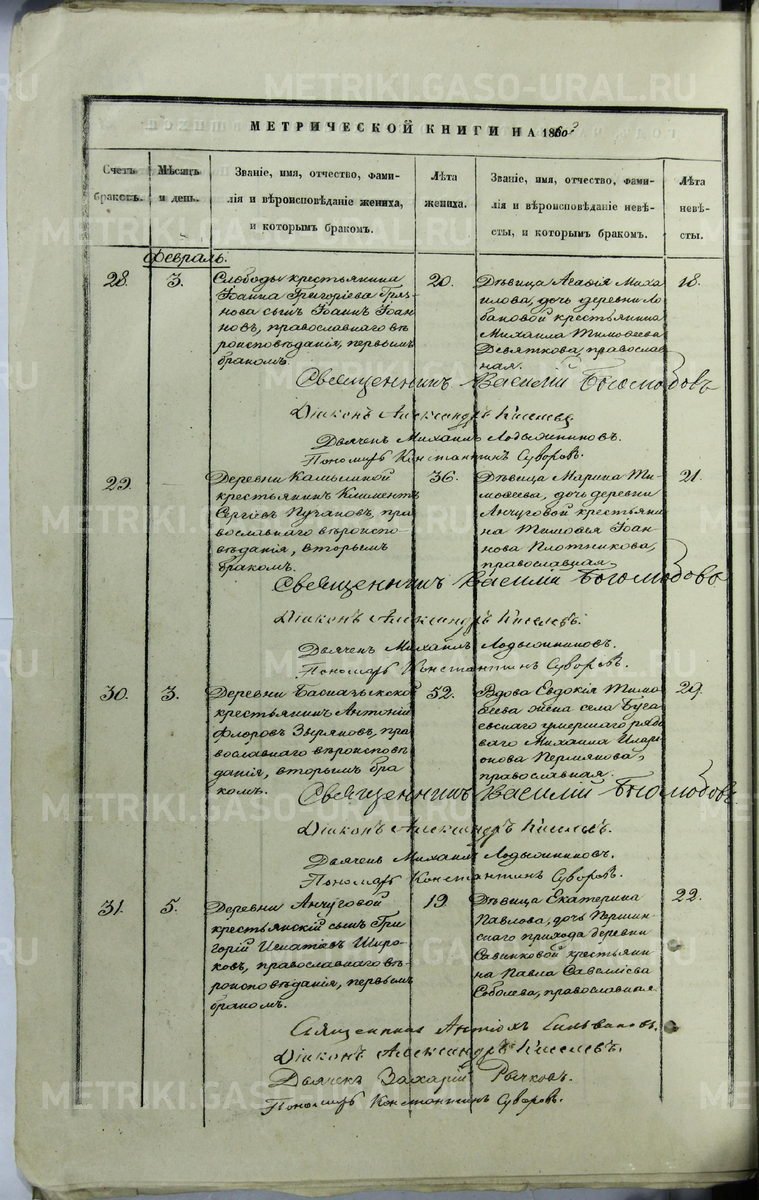 МЕТРИЧЕСКОЙ КНИГИ НА 1860й
Счетъ браковъ.
Мѣсяцъ и день.
Званіе, имя, отчество, фами-
лія и вѣроисповѣданіе жениха,
и которымъ бракомъ.
Лѣта жениха.
Званіе, имя, отчество, фами-
лія и вѣроисповѣданіе невѣ-
сты, и которымъ бракомъ.
Лѣта невѣ-
сты.
Февраль.
28. 3.
Слободы крестьянина
Іоанна Григоріева Гряз-
нова сынъ Іоаннъ Іоан-
новъ, православнаго вѣ
роисповѣданія, первымъ
бракомъ.
20.
Дѣвица Агафія Миха
илова, дочь деревни Ло
бановой крестьянина
Михаила Тимоѳеева
Девяткова, православ
ная.
18.
Священникъ Василій Боголюбовъ
Діаконъ Александръ Киселевъ
Дьячекъ Михаилъ Лодыжниковъ.
Пономарь Константинъ Суворовъ.
29.
Деревни Камышной
крестьянинъ Климентъ
Сергіевъ Пучановъ, пра
вославнаго вѣроиспо-
вѣданія, вторымъ
бракомъ.
36.
Дѣвица Марина Ти-
моѳеева, дочь деревни
Анчуговой крестьяни
на Тимоѳея Іоан-
нова Плотникова,
православная.
21.
Священникъ Василій Боголюбовъ
Діаконъ Александръ Киселевъ.
Дьячекъ Михаилъ Лодыжниковъ.
Пономарь Константинъ Суворовъ.
30. 3.
Деревни
крестьянинъ Антоній
Флоровъ Зыряновъ, пра
вославнаго вѣроисповѣ
данія, вторымъ бра
комъ.
52.
Вдова Евдокія Тимо
ѳеева жена села
умершаго рядо
ваго Михаила Илари
онова Пермякова,
православная.
29.
Священникъ Василій Боголюбовъ.
Діаконъ Александръ Киселевъ.
Дьячекъ Михаилъ Лодыжниковъ.
Пономарь Константинъ Суворовъ.
31. 5.
Деревни Анчуговой
крестьянскій сынъ Гри
горій Игнатіевъ Широ-
ковъ, православнаго вѣ-
роисповѣданія, первымъ
бракомъ.
19.
Дѣвица Екатерина
Павлова, дочь Першин-
скаго прихода деревни
Савинковой крестьяни
на Павла Савелліева
Соболева, православная
22.
Священникъ Антіохъ Сильвановъ.
Діаконъ Александръ Киселевъ.
Дьячекъ Захарій Рычковъ.
Пономарь Константинъ Суворовъ.
METRIKI.GASO-URAL.RU